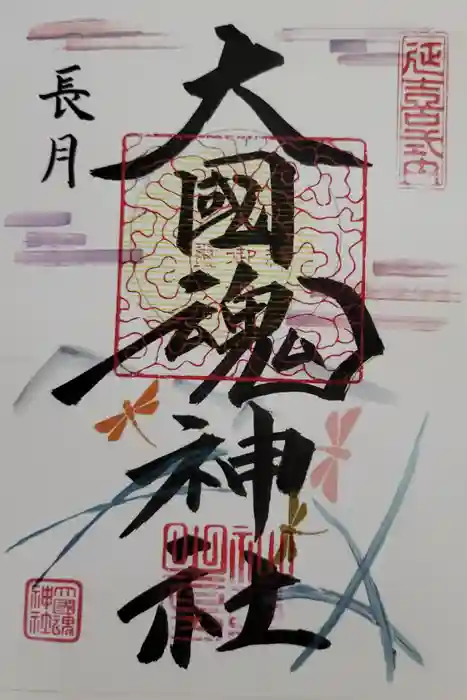 延喜式内
大國魂神社
長月
國魂
神社